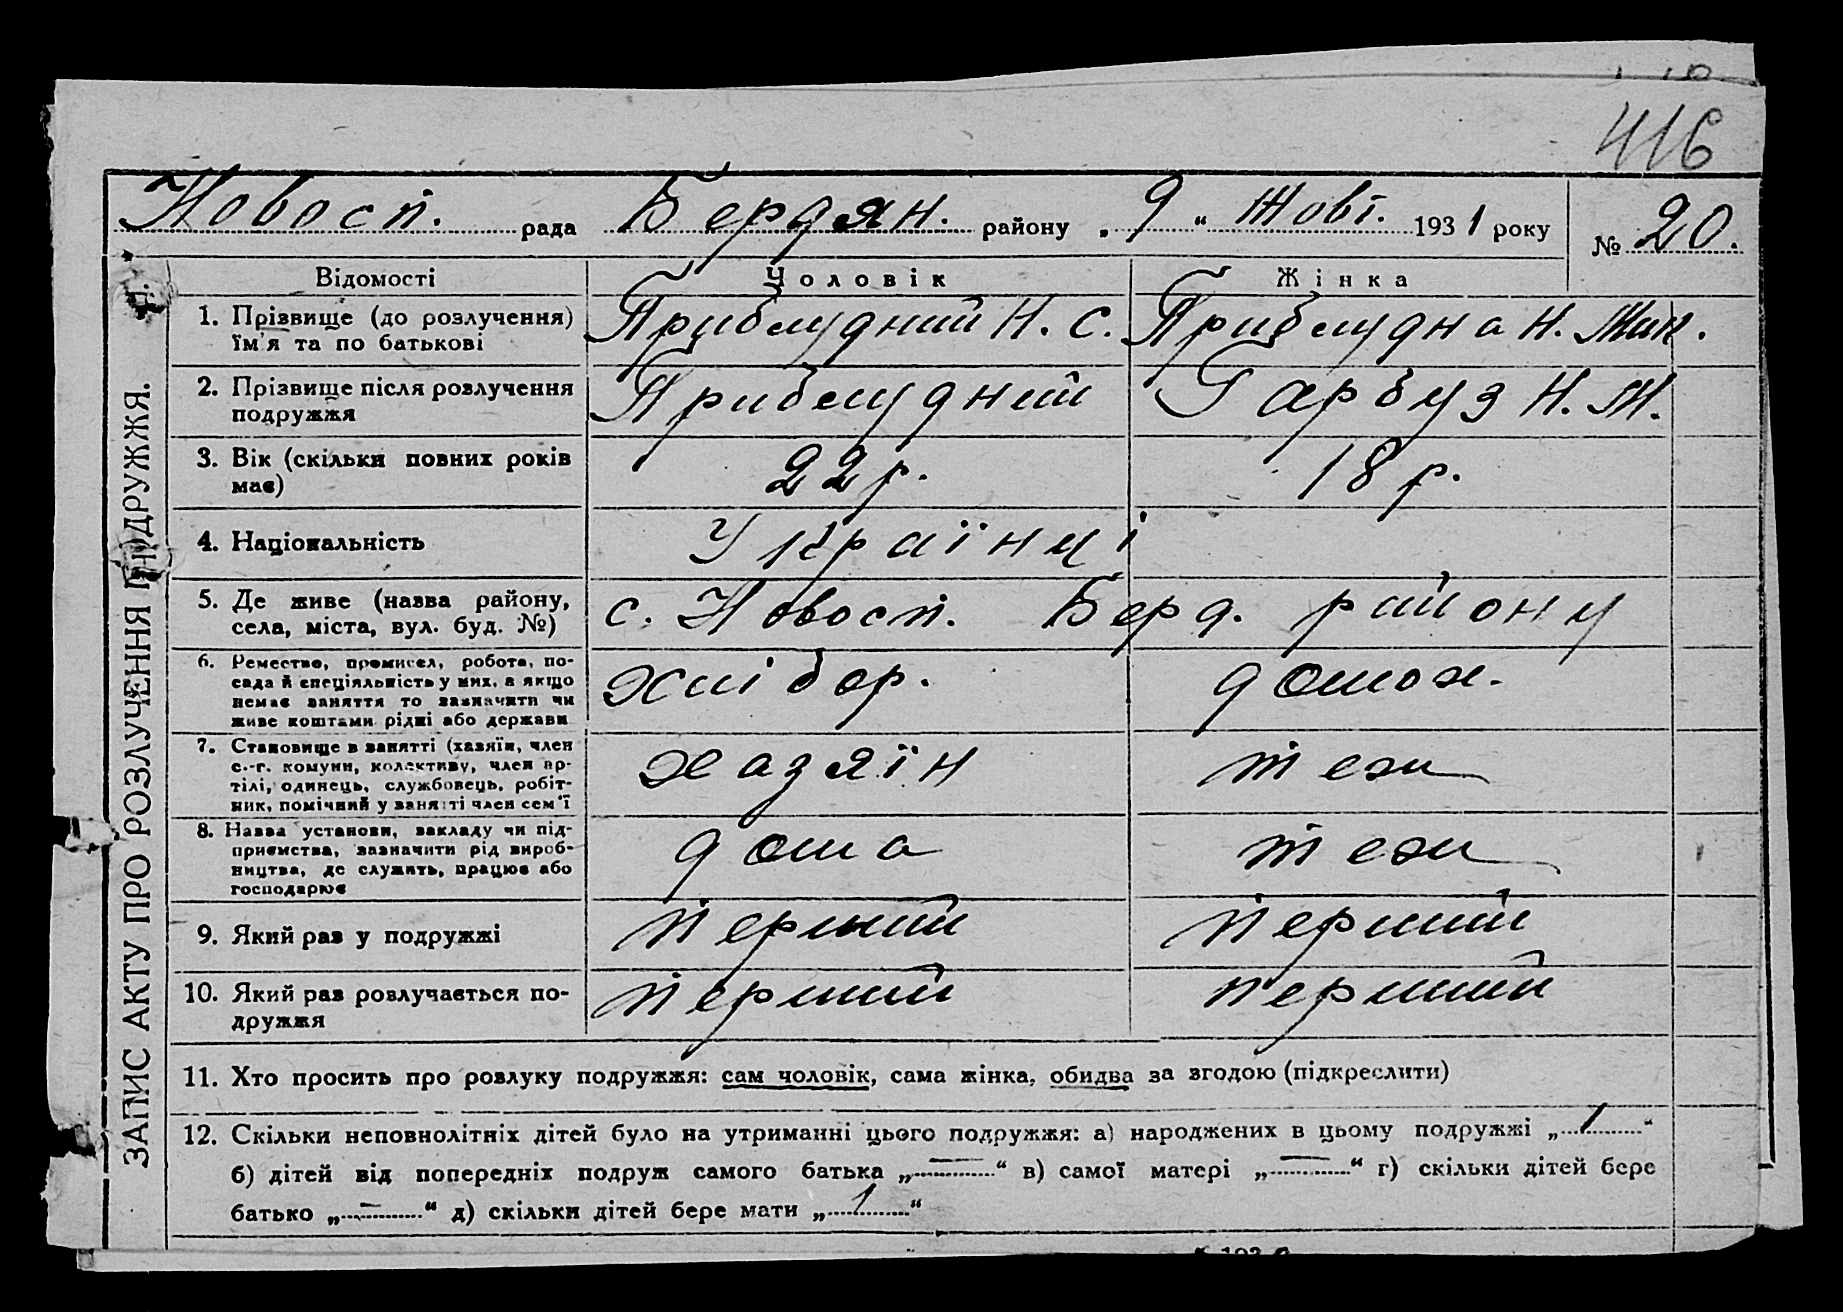 416
Новосп. рада Бердян. району „ 9 “ Жовт. 1931 року № 20.
ЗАПИС АКТУ ПРО РОЗЛУЧЕННЯ ПОДРУЖЖЯ.
Відомості Чоловік Жінка
1. Прізвище (до розлучення) ім'я та по батькові Приблудний Н. С. Приблудна Н.
2. Прізвище після розлучення подружжя Приблудний Гарбуз Н. М.
3. Вік (скільки повних років має) 22 р. 18 р.
4. Національність Українці
5. Де живе (назва району, села, міста, вул. буд. №) с. Новосп. Берд. району
6. Ремество, промисел, робота, по-
сада й спеціяльність у них, а якщо
немає заняття то зазначити чи
живе коштами рідні або держави
хлібор. домох.
7. Становище в занятті (хазяїн, член
с.-г. комуни, колективу, член ар-
тілі, одинець, службовець, робіт-
ник, помічний у занятті член сем'ї
хазяїн теж
8. Назва установи, закладу чи під-
приємства, зазначити рід вироб-
ництва, де служить, працює або
господарює
дома теж
9. Який раз у подружжі перший перший
10. Який раз розлучається по-
дружжя
перший перший
11. Хто просить про розлуку подружжя: сам чоловік, сама жінка, обидва за згодою (підкреслити)
12. Скільки неповнолітніх дітей було на утриманні цього подружжя: а) народжених в цьому подружжі „ 1 “
б) дітей від попередніх подруж самого батька „ — “ в) самої матері „ — “ г) скільки дітей бере
батько „ — “ д) скільки дітей бере мати „ 1 “